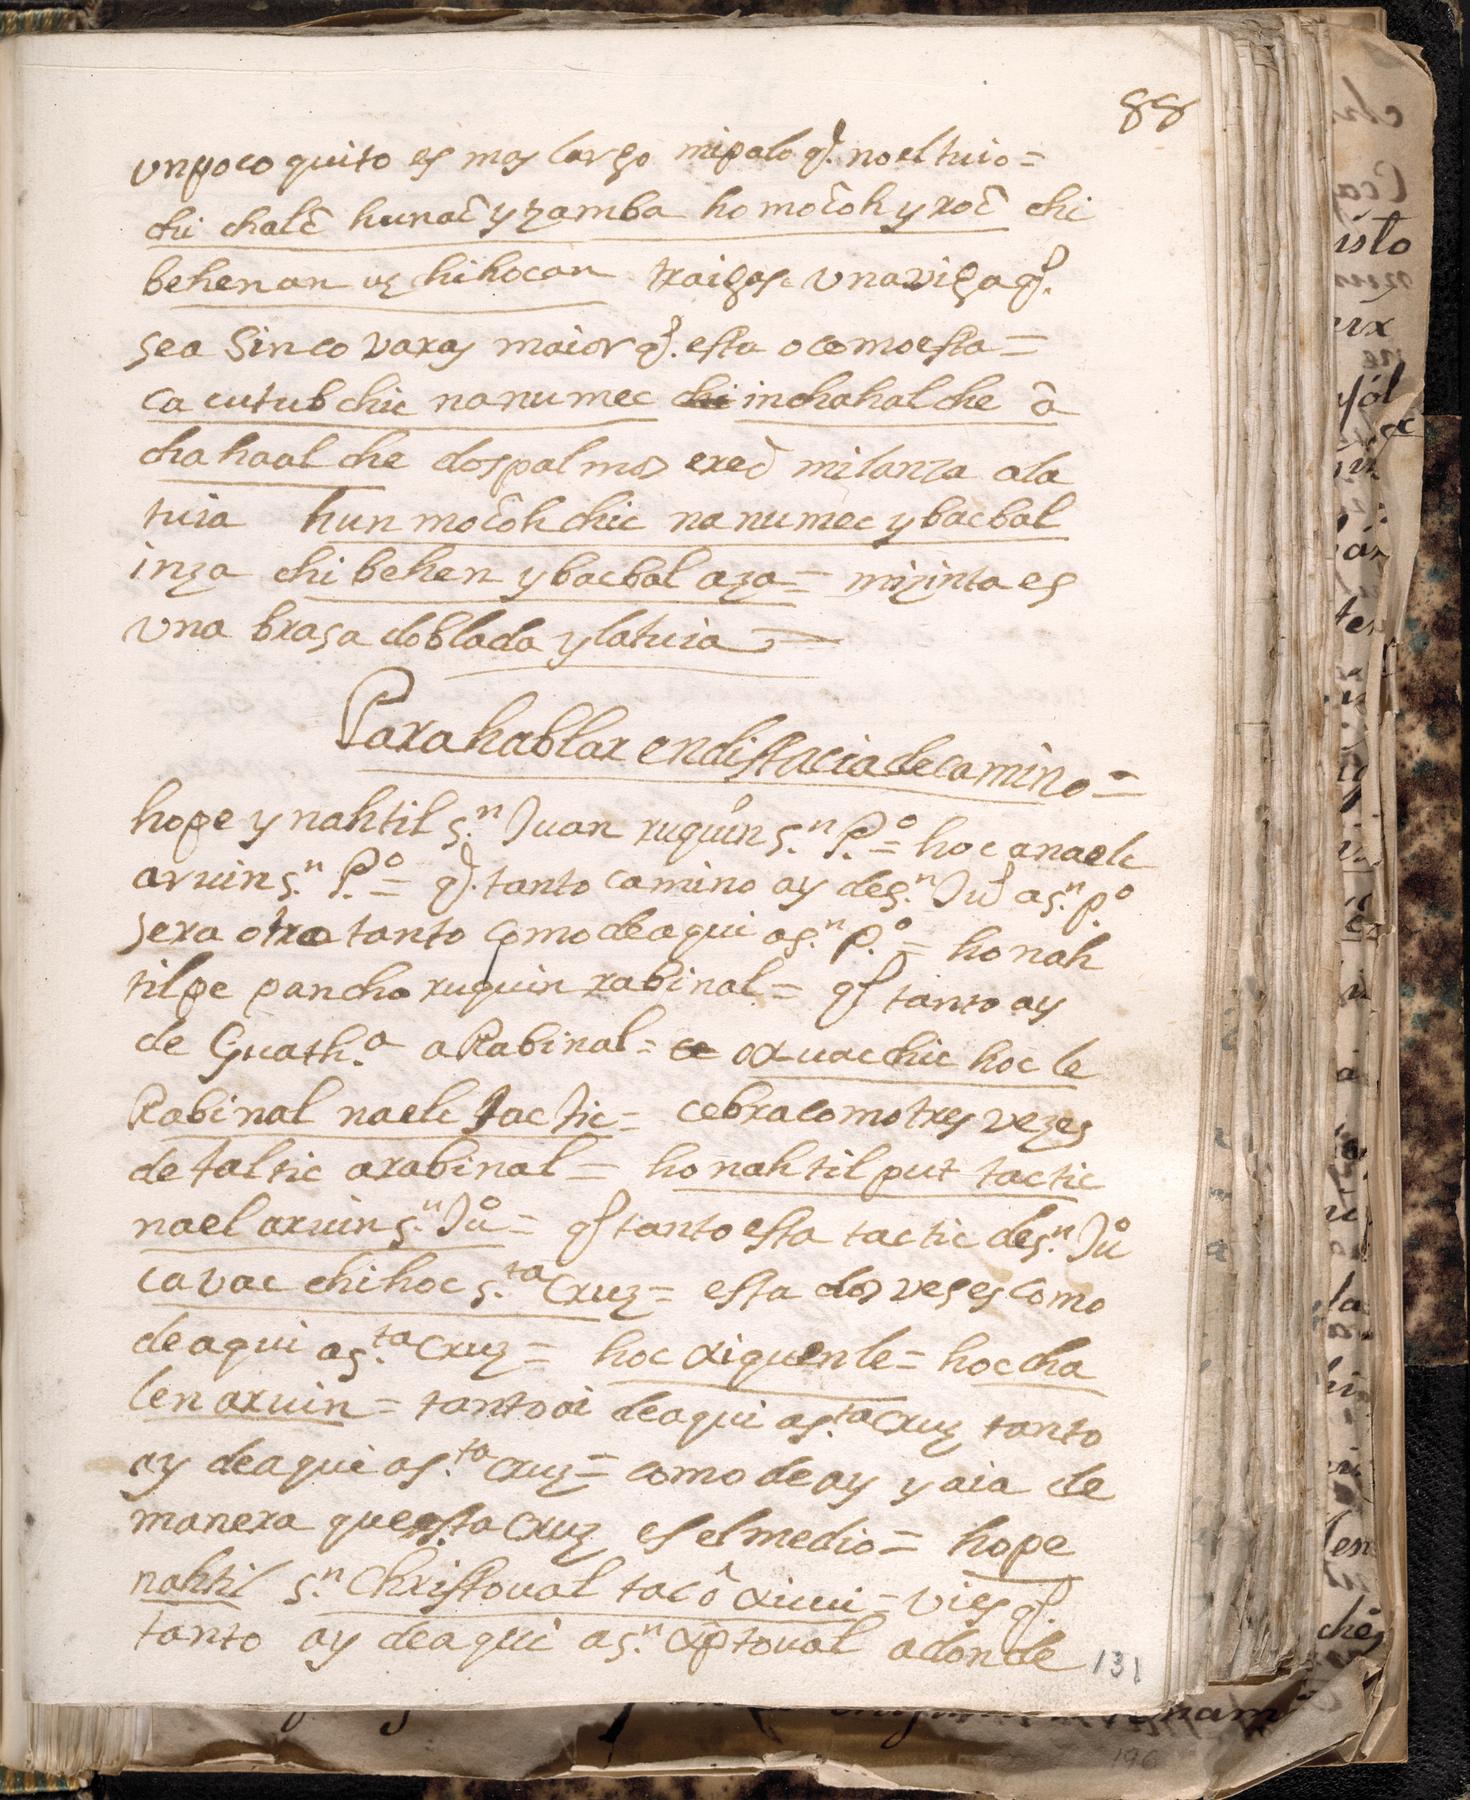 88
vnpoco quito es mas largo mipalo q̃. no el tuio =
chi chalc̃ hunac̃ yzamba ho moc̃oh y xoc̃ chi
behenan uz chihocan traigase vna viga q̃.
sea Sinco varas maior q̃. esta o como esta =
ca cutub chic na numec chi inchahalche â
chahaal che dos palmos exed mi lanza ala
tuia hun moc̃oh chic na numec ybacbal
inza chi behen ybacbal aza = mizinta es
vna brasa doblada y la tuia =
Para hablar en distacia de camino =
hope y nahtil s.n Juan ruquin s.n P.o = hoc anaelc
arvin s.n P.o = q̃. tanto camino ay de s.n Juo a s.n p.o
sera otro tanto como de aqui a s.n P.o = ho nah
til pe pancho ruquin rabinal = q̃ tanto ay
de Guath.a a Rabinal = ox uachic hoc le
Rabinal naelc tactic = cebra como tres vezes
de taltic a rabinal = ho nahtil put tactic
nael arvin s.n Juo = q̃ tanto esta tactic de s.n Juo
cavac chi hoc s.ta Cruz = esta dos veses como
de aqui a s.ta Cruz = hoc xiquen le = hoc cha
len arvin = tanto ai de aqui a s.ta Cruz tanto
ay de aqui a s.ta Cruz = como de ay y aia de
manera que sta Cruz es el medio = hope
nahtil s.n Christoual tacô xiui - vies q̃.
tanto ay de aqui a s.n xptoual adonde
131
196